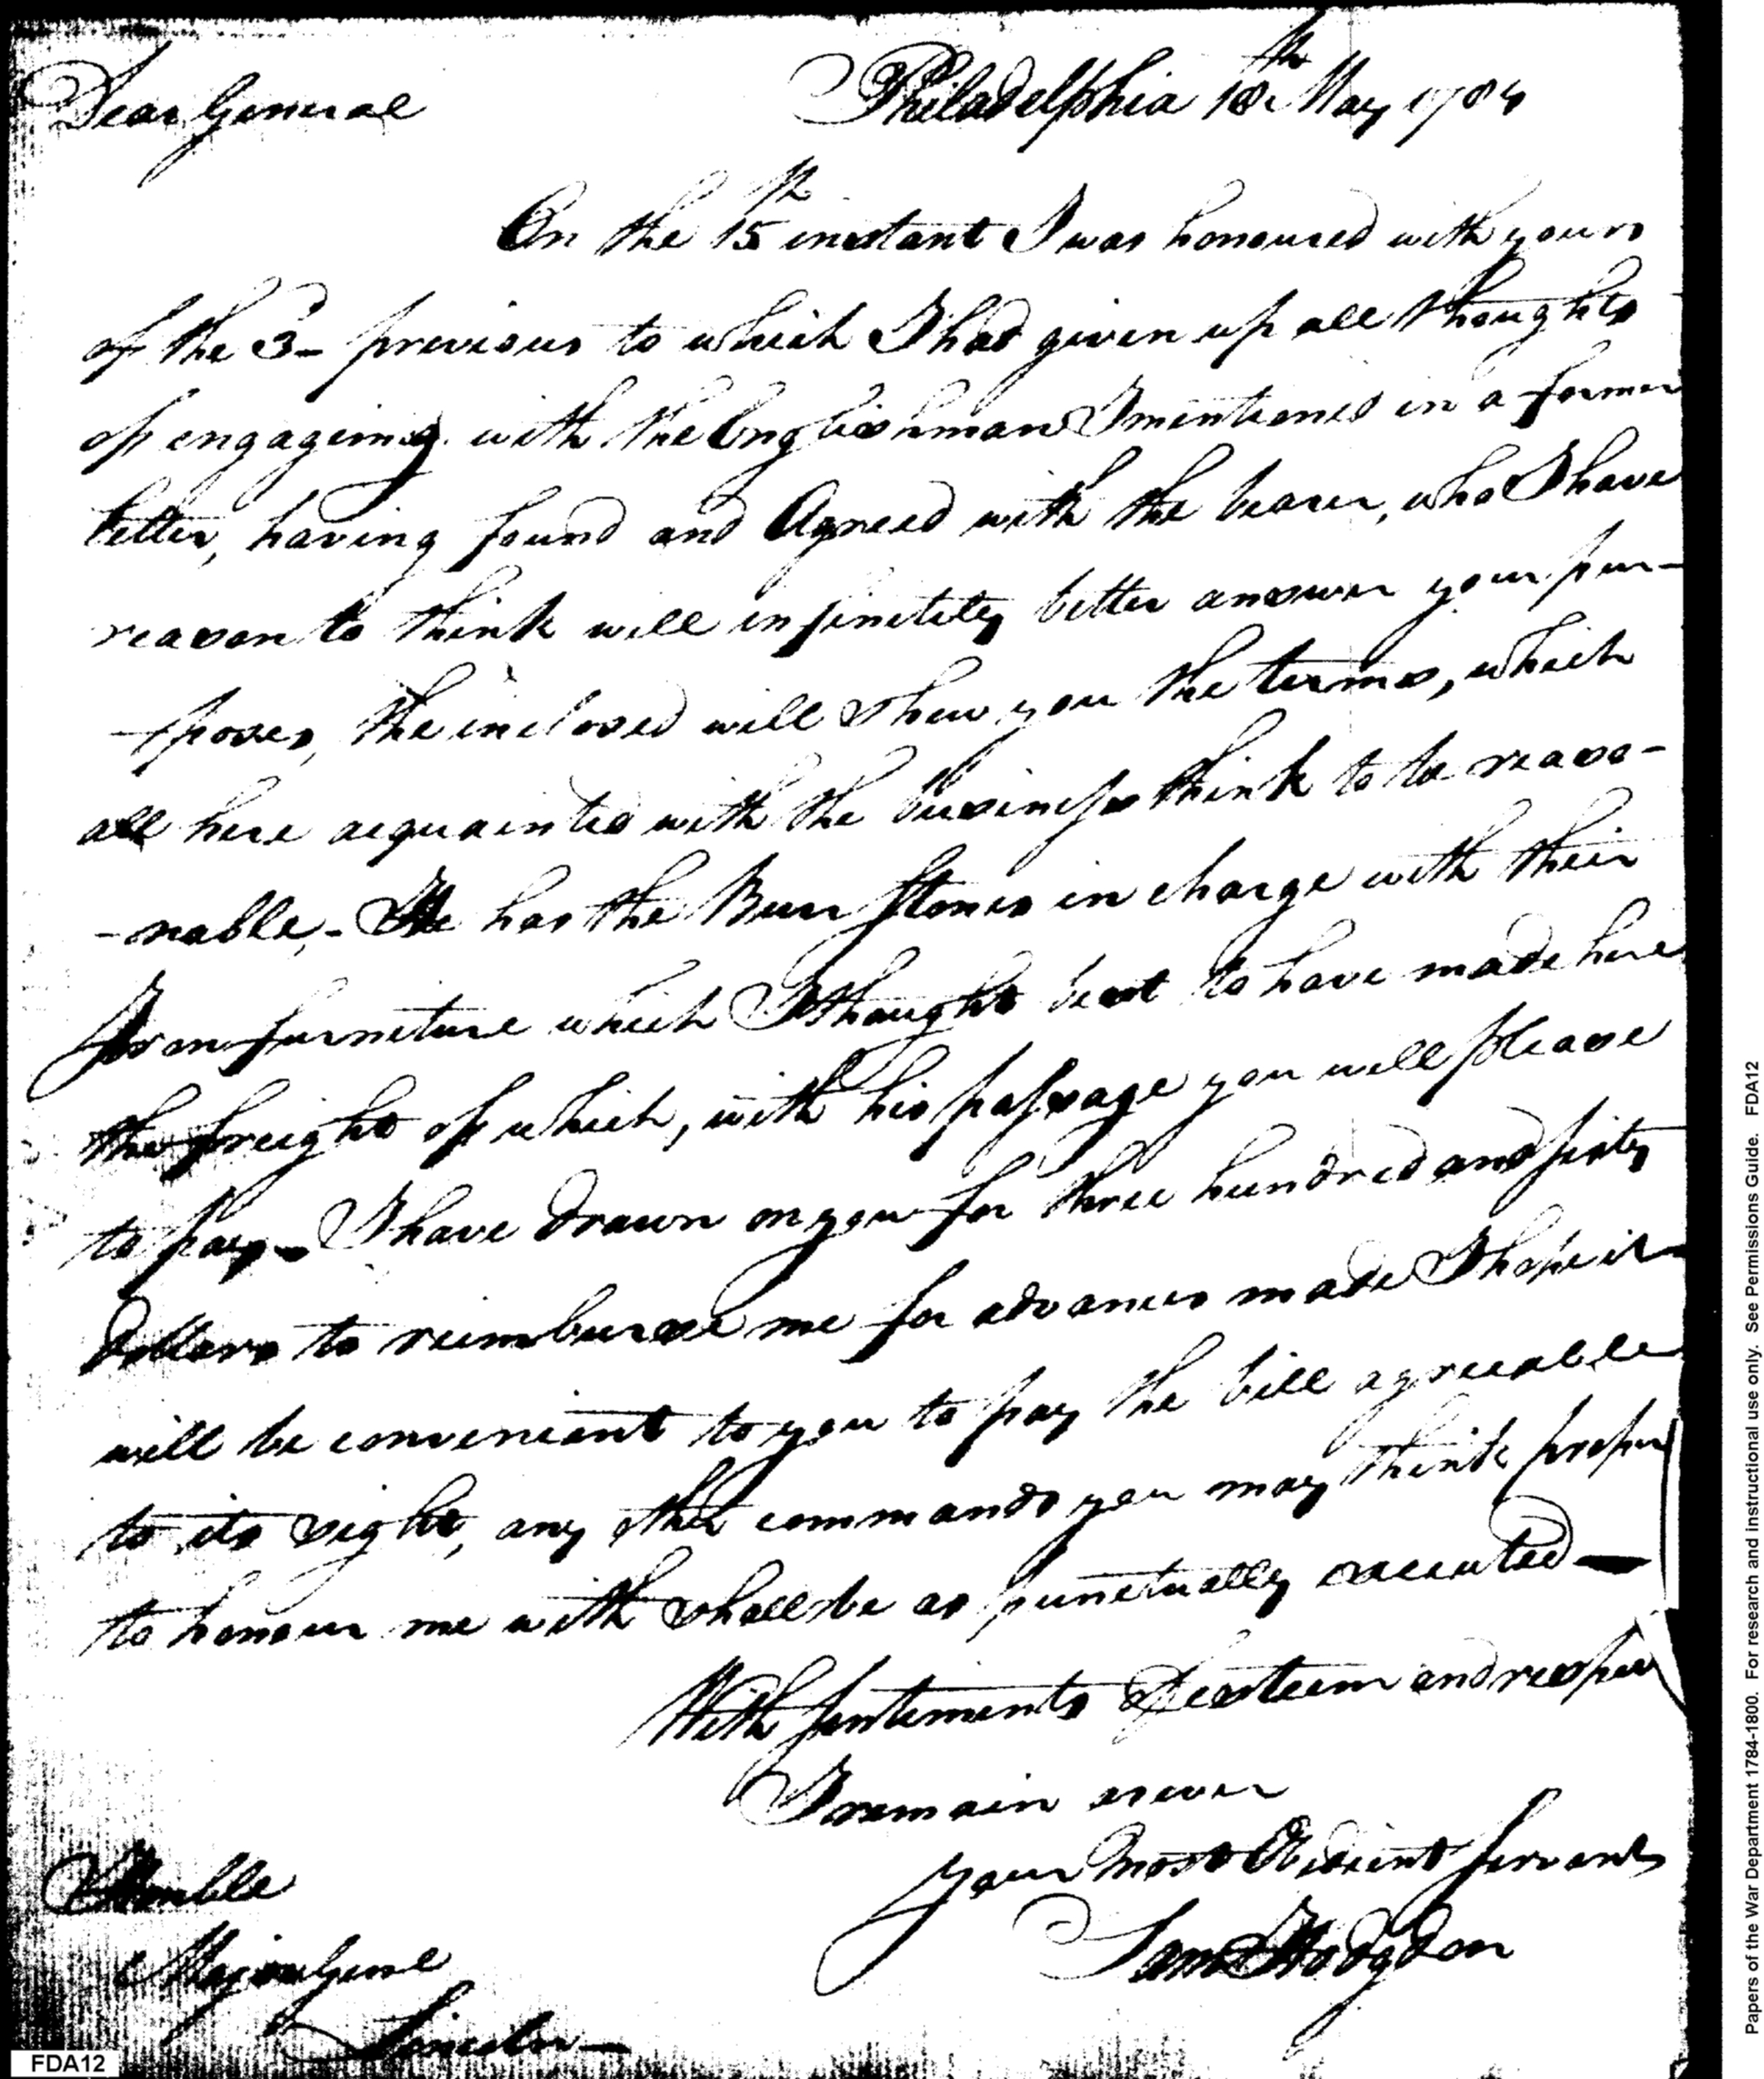 Dear General
Philadelphia 18th May 1784
On the 15th instant I was honoured with yours
of the 3d previous to which I had given up all thoughts
of engageing with the Englishman I mentioned in a former
letter, having found and Agreed with the bearer, who I have
reason to think will infinitely better answer your pur-
-poses, the inclosed will shew you the terms, which
all here acquainted with the business think to be reaso-
-nable,- He has the Burr Stones in charge with their
Iron furniture which I thought best to have made here
the freight of which, with his passage you will please
to pay - I have drawn on you for three hundred and sixty
Dollars to reimburse me for advances made I hope it
will be convenient to you to pay the bill agreeable
to its sight, any other commands you may think proper
to honour me with shall be as punctually executed —
With sentiments of esteem and respect
I remain as ever
your most Obedient servant
Sam Hodgdon
Honble
Major Genl
Lincoln —
FDA12
Papers of the War Department 1784-1800. For research and instructional use only. See Permissions Guide. FDA12